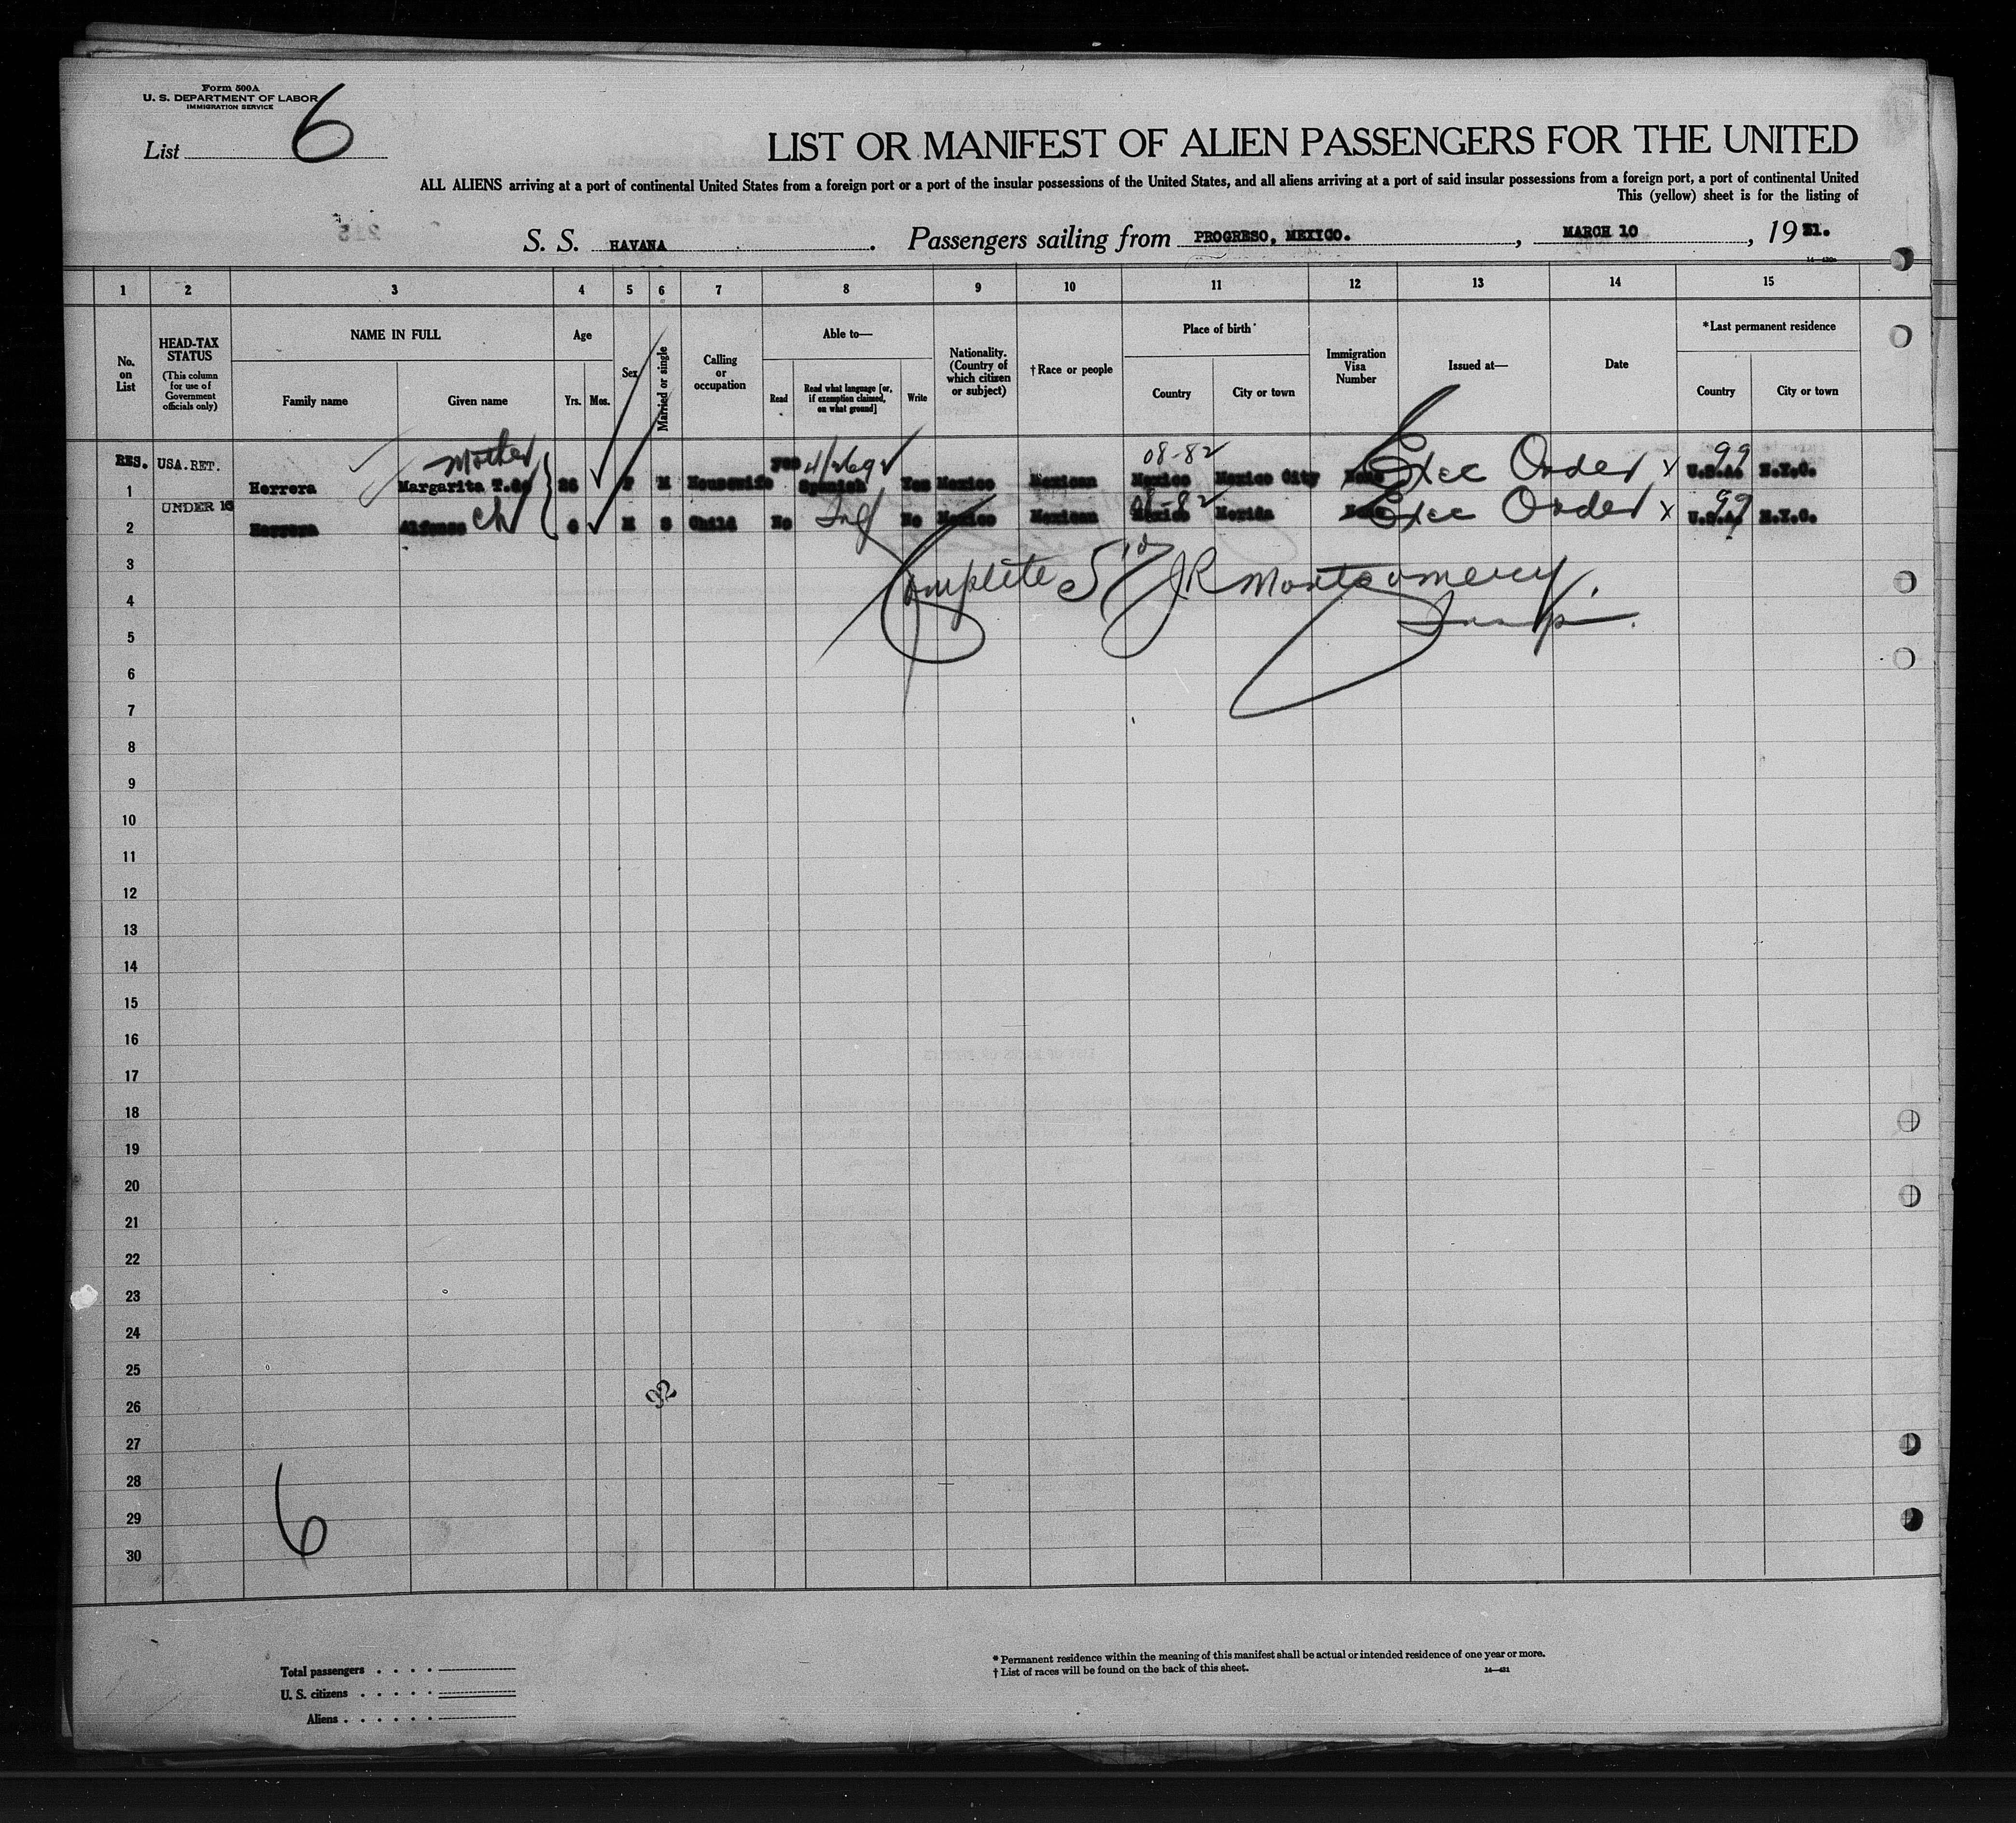 Form 500A
U. S. DEPARTMENT OF LABOR
IMMIGRATION SERVICE
List 6
LIST OR MANIFEST OF ALIEN PASSENGERS FOR THE UNITED
ALL ALIENS arriving at a port of continental United States from a foreign port or a port of the insular possessions of the United States, and all aliens arriving at a port of said insular possessions from a foreign port, a port of continental United
This (yellow) sheet is for the listing of
S. S. HAVANA. Passengers sailing from PROGRESO, MEXICO., MARCH 10, 1931.
1 2 3 4 5 6 7 8 9 10 11 12 13 14 15
No. on List
HEAD-TAX STATUS (This column for use of Government officials only)
NAME IN FULL
Family name
Given name
Age
Yrs. Mos.
Sex
Married or single
Calling or occupation
Able to—
Read
Read what language [or, if exemption claimed, on what ground]
Write
Nationality. (Country of which citizen or subject)
† Race or people
Place of birth
Country
City or town
Immigration Visa Number
Issued at—
Date
*Last permanent residence
Country
City or town
Mother 08-82 99
RES. USA. RET.
1 Herrera Margarita T.de F M Housewife yes Spanish Yes Mexico Mexican Mexico Mexico City None Exec Order x U.S.A. N.Y.C.
UNDER 16 08-82 99
2 Herrera Alfonso ch 6 M S Child No No Mexico Mexican Mexico Merida None Exec Order x U.S.A. N.Y.C.
3
Complete JR Montgomery
4
Insp.
5
6
7
8
9
10
11
12
13
14
15
16
17
18
19
20
21
22
23
24
25
26
92
27
28
29
6
30
Total passengers . . . .
U. S. citizens . . . . .
Aliens . . . . . .
* Permanent residence within the meaning of this manifest shall be actual or intended residence of one year or more.
† List of races will be found on the back of this sheet.
14—431